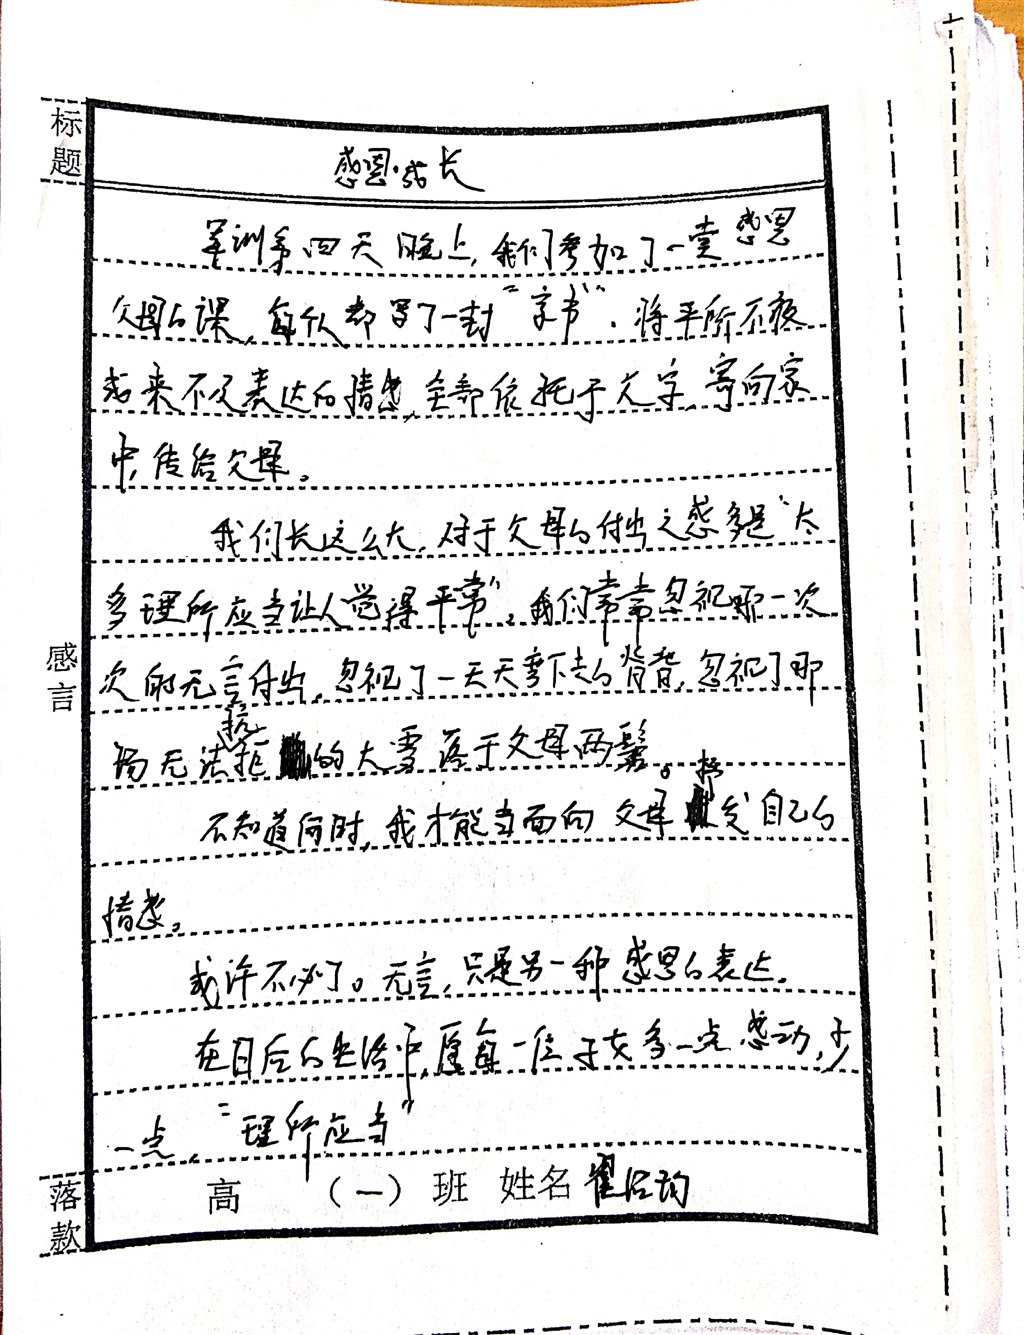 标题
感恩·成长
军训第四天晚上,我们参加了一堂感恩
父母的课,每个人都写了一封“家书”。将平所不敢
或来不及表达的情感,全部依托于文字,寄向家
中,传给父母。
我们长这么大,对于父母的付出之感多是“太
多理所应当让人觉得平常”。我们常常忽视那一次
次的无言付出,忽视了一天天弯下去的背脊,忽视了那
场无法抗拒的大雪落于父母两鬓。
感言
不知道何时,我才能当面向父母抒发自己的
情感。
或许不必了。无言,只是另一种感恩的表达。
在日后的生活中,愿每一位子女多一点感动,少
一点,“理所应当”
落款
高 (一) 班 姓名 翟